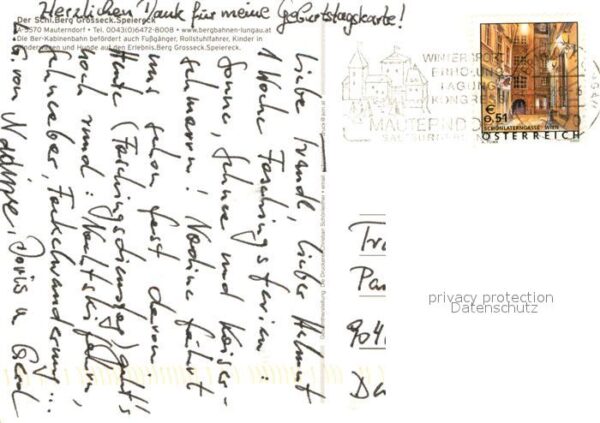 Herzlichen Dank für meine Geburtstagskarte!
Der Schi.Berg Grosseck.Speiereck
A-5570 Mauterndorf • Tel. 0043(0)6472-8008 • www.bergbahnen-lungau.at
Die 8er-Kabinenbahn befördert auch Fußgänger, Rollstuhlfahrer, Kinder in
Kinderwägen und Hunde auf den Erlebnis.Berg Grosseck.Speiereck.
Liebe Traude, lieber Helmut
1 Woche Faschingsferien:
Sonne, Schnee und Kaiser-
schmarrn! Nadine fährt
uns schon fast davon.
Heute (Faschingsdienstag) geht's
noch rund: Nachtskifahren,
Fackelwanderung...
L.G. von Nadine, Doris u Gerd
WINTERSPORT
ERHOLUNG
TAGUNG
KONGRE
MAUTERNDO
€ 0,51
SCHÖNLATERNGASSE, WIEN
ÖSTERREICH
Tra
Pa
904
Da
privacy protection
Datenschutz